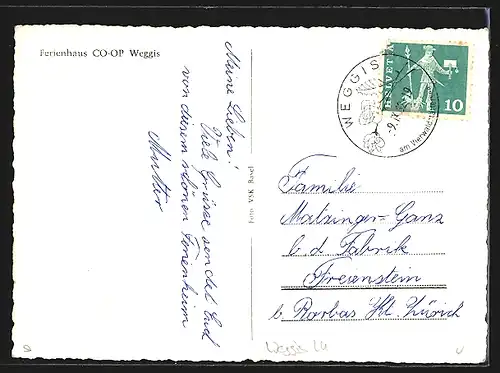 Ferienhaus CO-OP Weggis
Meine Lieben!
Viele Grüsse sendet Euch
von diesem schönen Ferienheim
Mutter
Foto: VSK Basel
WEGGIS
am Vierwaldstättersee
HELVETIA
10
Familie
Matzinger-Ganz
b. d. Fabrik
Freienstein
b. Rorbas Kt. Zürich
Weggis LU